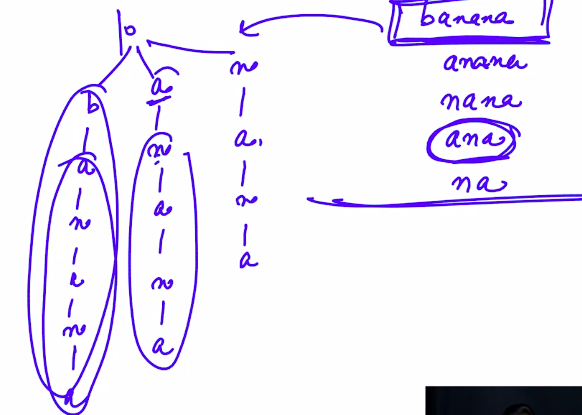 b
a
n
a
n
a
a
n
a
n
a
n
a
n
a
banana
anana
nana
ana
na